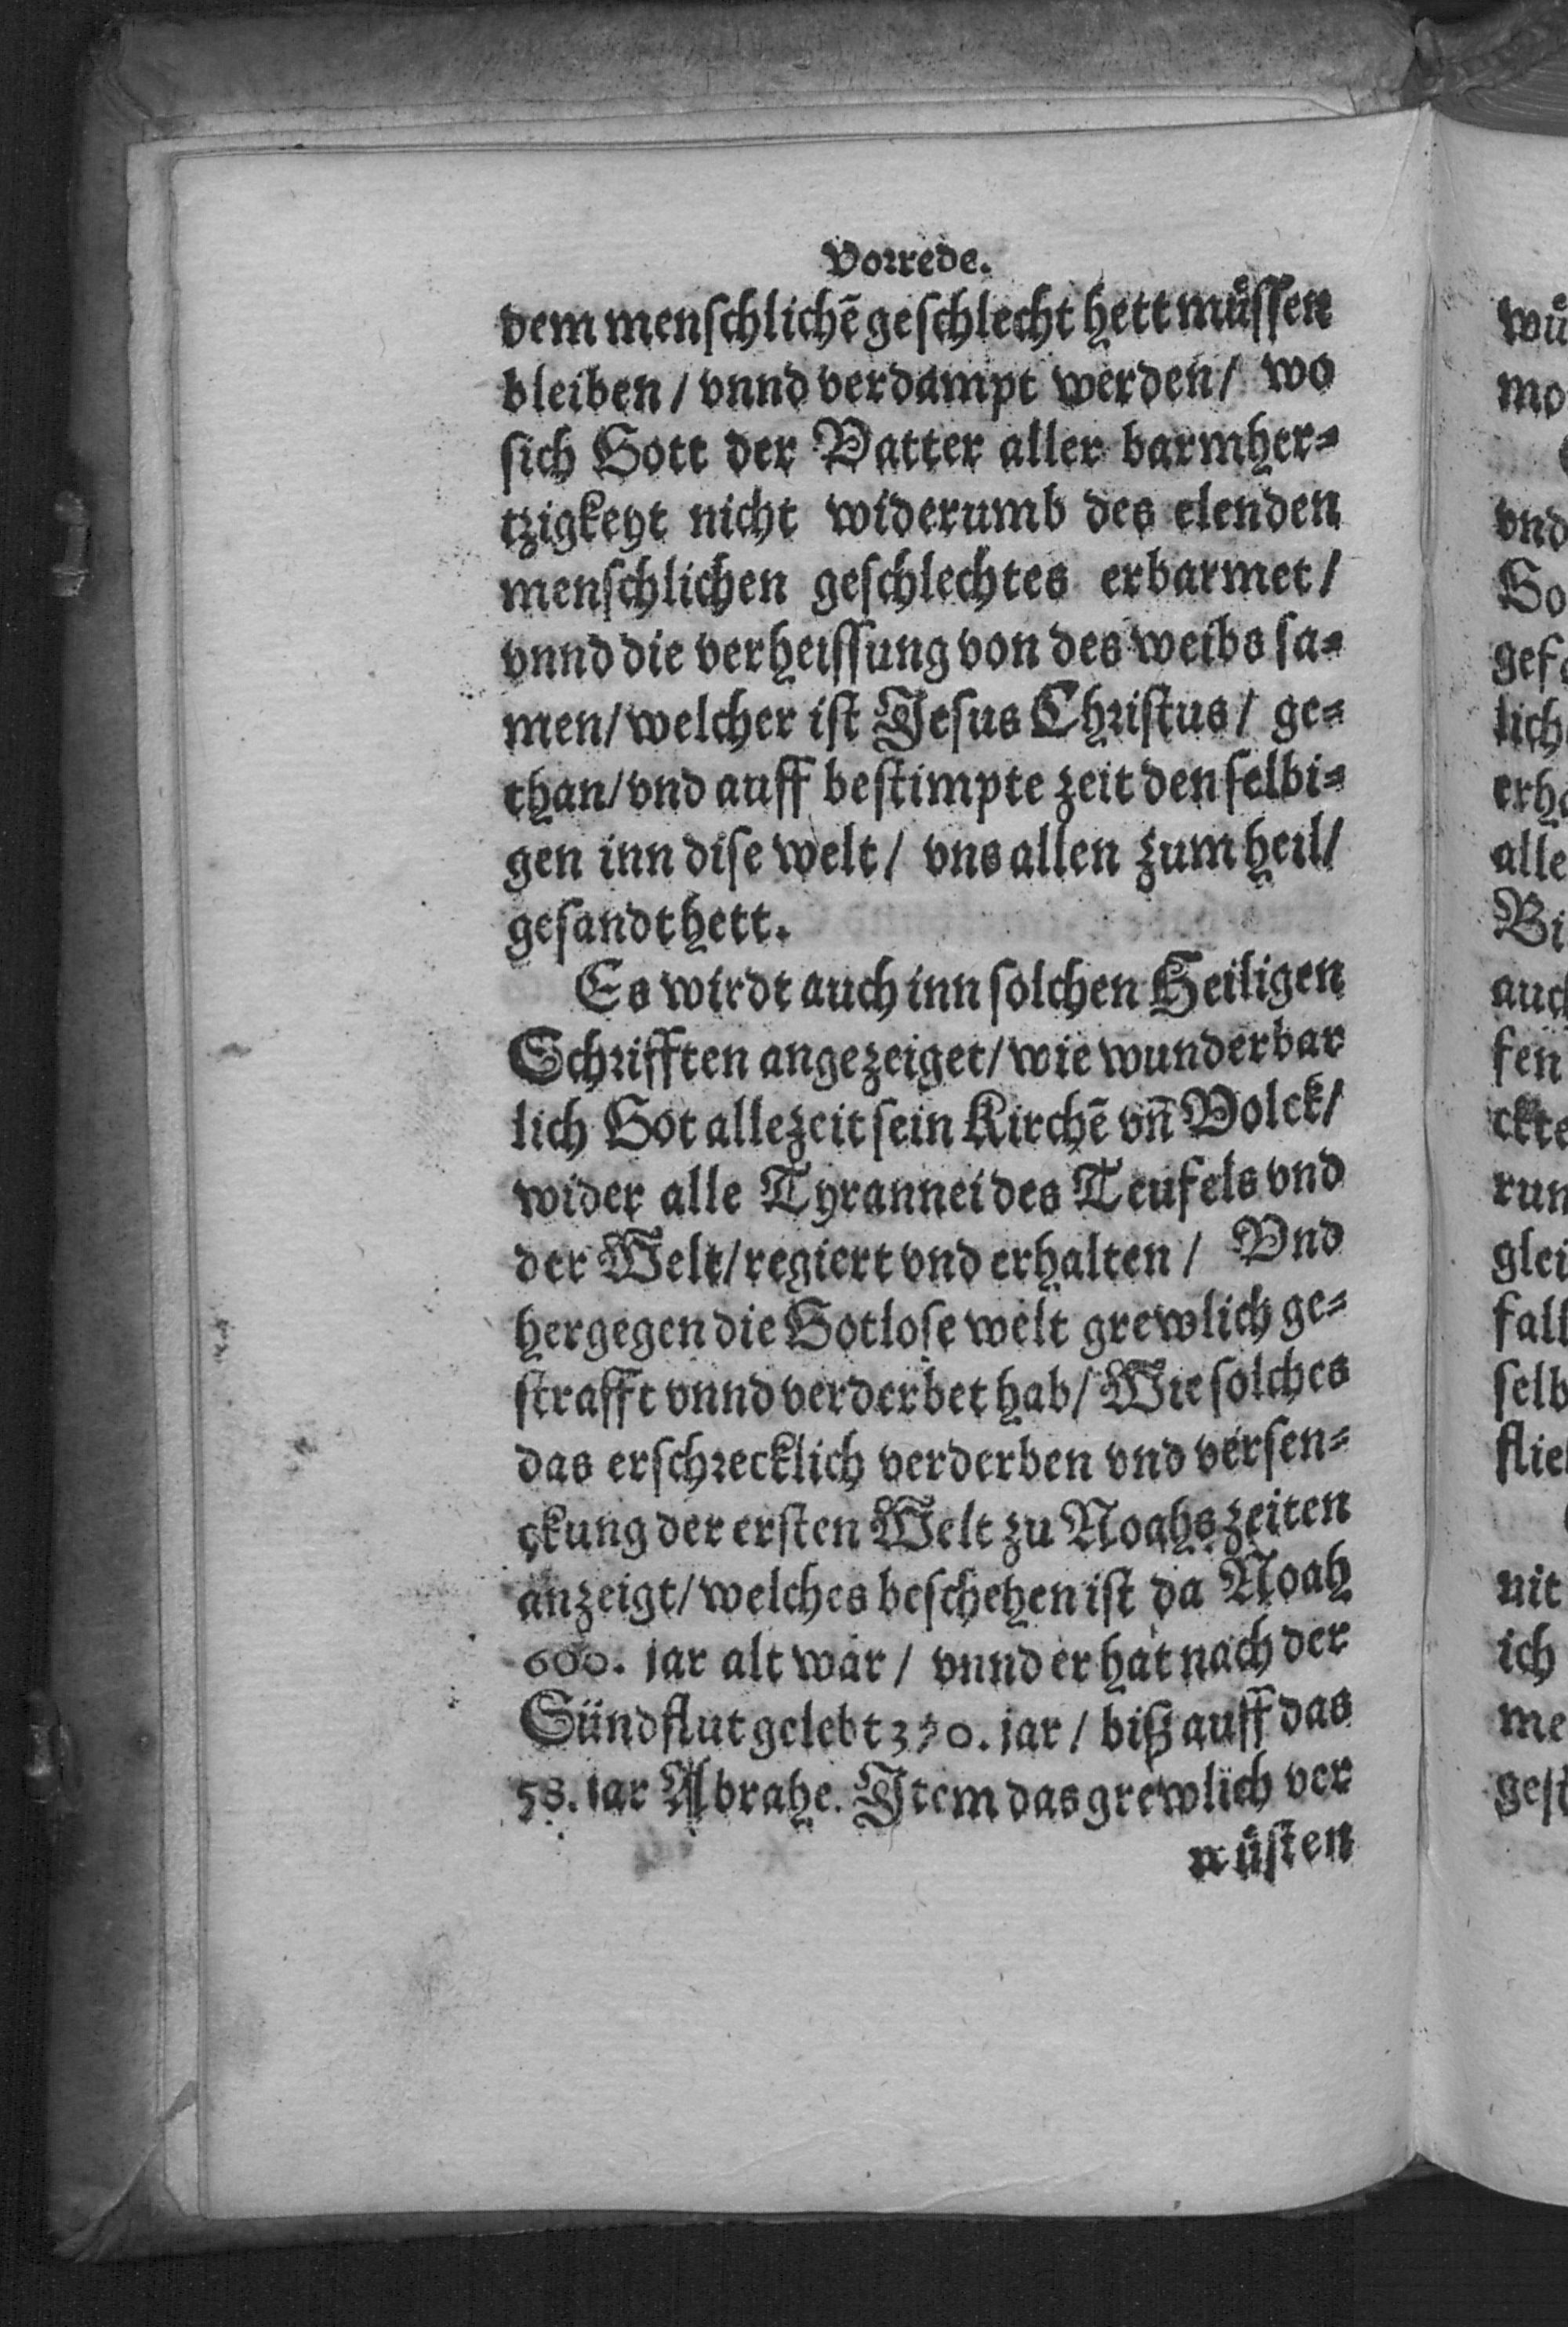 Vorrede.
dem menschlichē geschlecht hett muͤssen
bleiben / vnnd verdampt werden / wo
sich Gott der Vatter aller barmher⸗
tzigkeyt nicht widerumb des elenden
menschlichen geschlechtes erbarmet /
vnnd die verheissung von des weibs sa⸗
men / welcher ist Jesus Christus / ge⸗
than / vnd auff bestimpte zeit den selbi⸗
gen inn dise welt / vns allen zum heil /
gesandt hett.
Es wirdt auch inn solchen Heiligen
Schrifften angezeiget / wie wunderbar
lich Got allezeit sein Kirchē vñ Volck /
wider alle Tyrannei des Teufels vnd
der Welt / regiert vnd erhalten / Vnd
hergegen die Gotlose welt grewlich ge⸗
strafft vnnd verderbet hab / Wie solches
das erschrecklich verderben vnd versen⸗
ckung der ersten Welt zu Noahs zeiten
anzeigt / welches beschehen ist da Noah
600. jar alt war / vnnd er hat nach der
Sündflut gelebt 350. jar / biß auff das
58. jar Abrahe. Jtem das grewlich ver
wuͤsten
wuͤ
mo
vnd
Go
gef
lich
erh
alle
Bi
auch
fen
ckte
run
glei
fall
selb
flie
nit
ich
me
gest